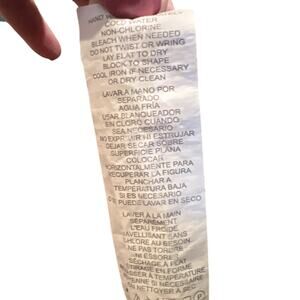 HAND W
COLD WATER
NON-CHLORINE
BLEACH WHEN NEEDED
DO NOT TWIST OR WRING
LAY FLAT TO DRY
BLOCK TO SHAPE
COOL IRON IF NECESSARY
OR DRY CLEAN
LAVAR A MANO POR
SEPARADO
AGUA FRIA
USAR BLANQUEADOR
EN CLORO CUANDO
SEA NECESARIO
NO EXPRIMIR NI ESTRUJAR
DEJAR SECAR SOBRE
SUPERFICIE PLANA
COLOCAR
HORIZONTALMENTE PARA
RECUPERAR LA FIGURA
PLANCHAR A
TEMPERATURA BAJA
SI ES NECESARIO
O SE PUEDE LAVAR EN SECO
LAVER À LA MAIN
SÉPARÉMENT
L'EAU FROIDE
JAVELLISANT SANS
CHLORE AU BESOIN
NE PAS TORDRE
NI ESSORER
SÉCHAGE À PLAT
ETIRAGE EN FORME
REPASSER À TEMPERATURE
MOYENNE SI NÉCESSAIRE
OU NETTOYER À SEC